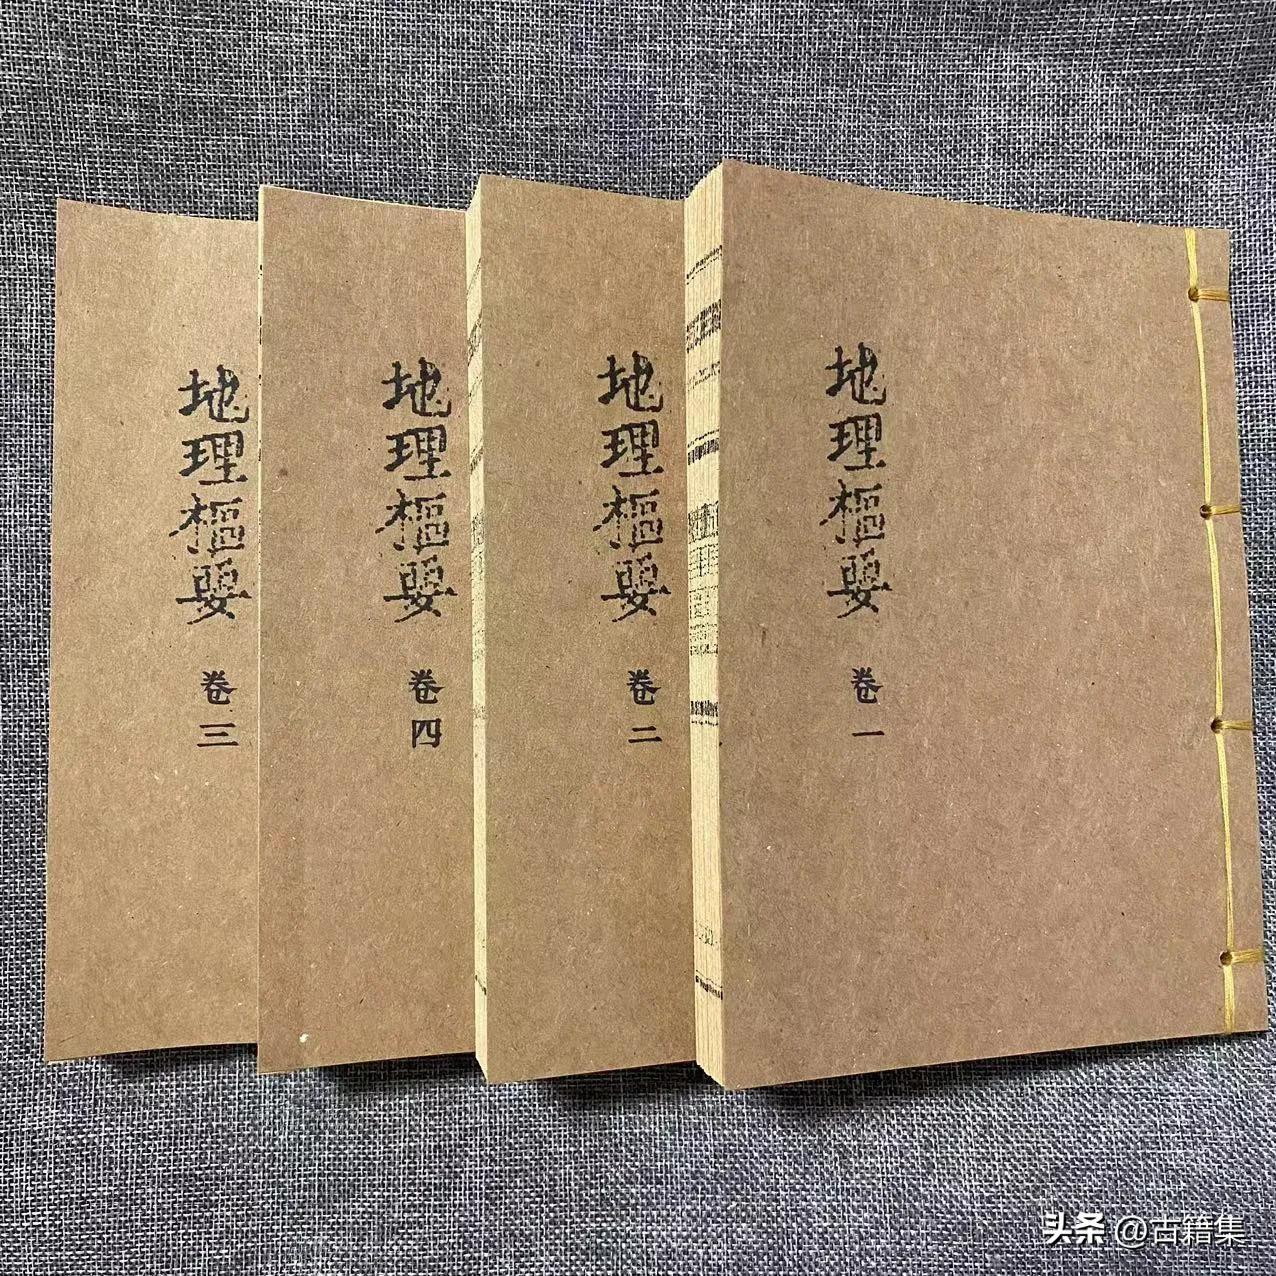 地理樞要
卷一
地理樞要
卷二
地理樞要
卷四
地理樞要
卷三
头条 @古籍集